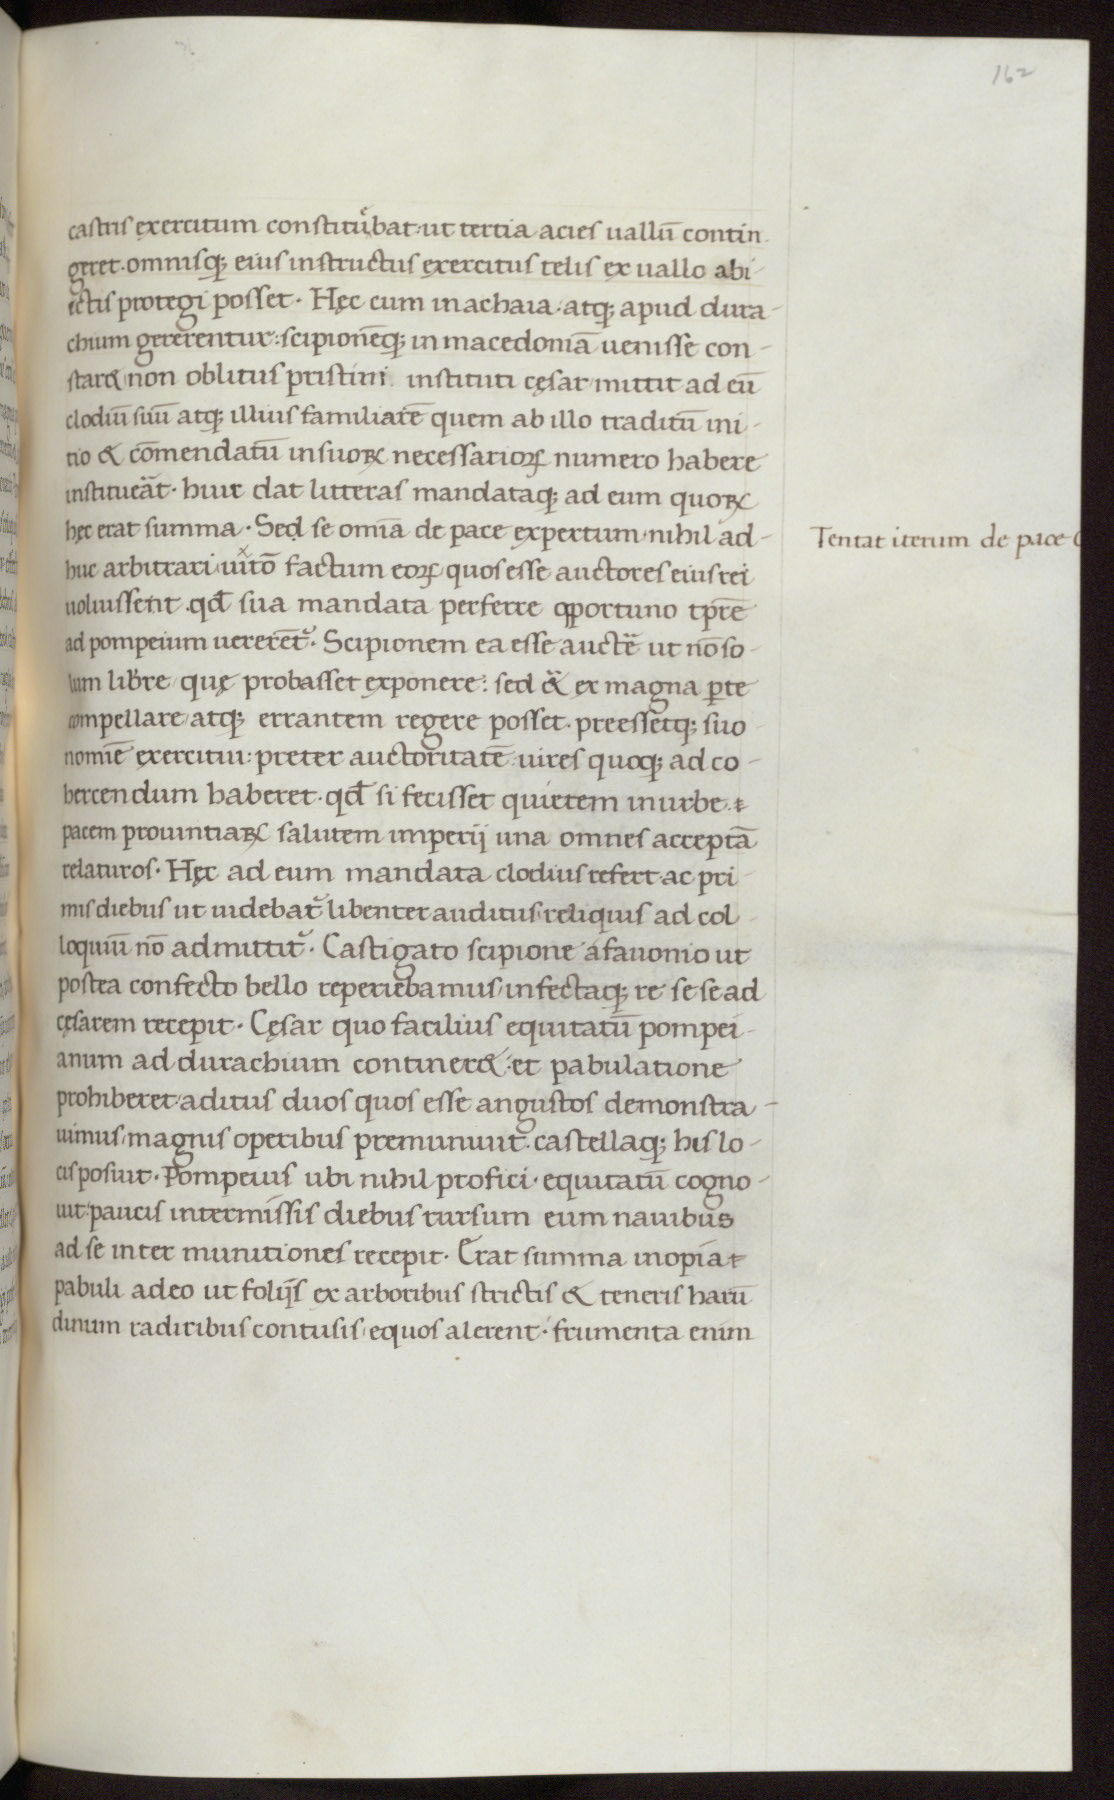 162
castris exercitum constitu̇ebat·ut tertia acies uallū contin
geret·omnisq; eius instructus exercitus telis ex uallo abi-
ectis protegi posset· Hęc cum in achaia·atq; apud dura-
chium gererentur:scipionēq; in macedoniā uenisse con-
star& non oblitus pristini instituti cęsar mittit ad eū
clodiū suū atq; illius familiarē quem ab illo traditū ini-
tio & cōmendatū in suoꝝ necessarioꝝ numero habere
instituerat· huic dat litteras mandataq; ad eum quoꝝ
hęc erat summa· Sed se omīa de pace expertum·nihil ad-
Tentat iterum de pace
huc arbitrari uitō factum eoꝝ quos esse auctores eius rei
uoluissent·qd̄ sua mandata perferre opportuno tpre̅
ad pompeium uererent᷑· Scipionem ea esse aucte̅ ut nō so-
lum libre quę probasset exponere: sed & ex magna ꝑte
compellare atq; errantem regere posset·preessetq; suo
nomie̅ exercitui: preter auctoritatē uires quoq; ad co-
hercendum haberet·qd̄ si fecisset quietem in urbe·⁊
pacem prouintiaꝝ salutem imperij una omnes acceptā
relaturos· Hęc ad eum mandata clodius refert·ac pri-
mis diebus ut uidebat᷑ libenter auditus·reliquis ad col-
loquiū nō admittit᷑· Castigato scipione a fauonio ut
postea confecto bello reperiebamus·infectaq; re se se ad
cęsarem recepit· Cęsar quo facilius equitatū pompei-
anum ad durachium contineret& et pabulatione
prohiberet·aditus duos quos esse angustos demonstra-
uimus·magnis operibus premuniuit·castellaq; his lo-
cis posuit· Pompeius ubi nihil profici·equitatū cogno-
uit:paucis intermissis diebus rursum eum nauibus
ad se inter munitiones recepit· Erat summa inopia ⁊
pabuli adeo ut folijs ex arboribus strictis & teneris harū
dinum radicibus contusis·equos alerent·frumenta enim